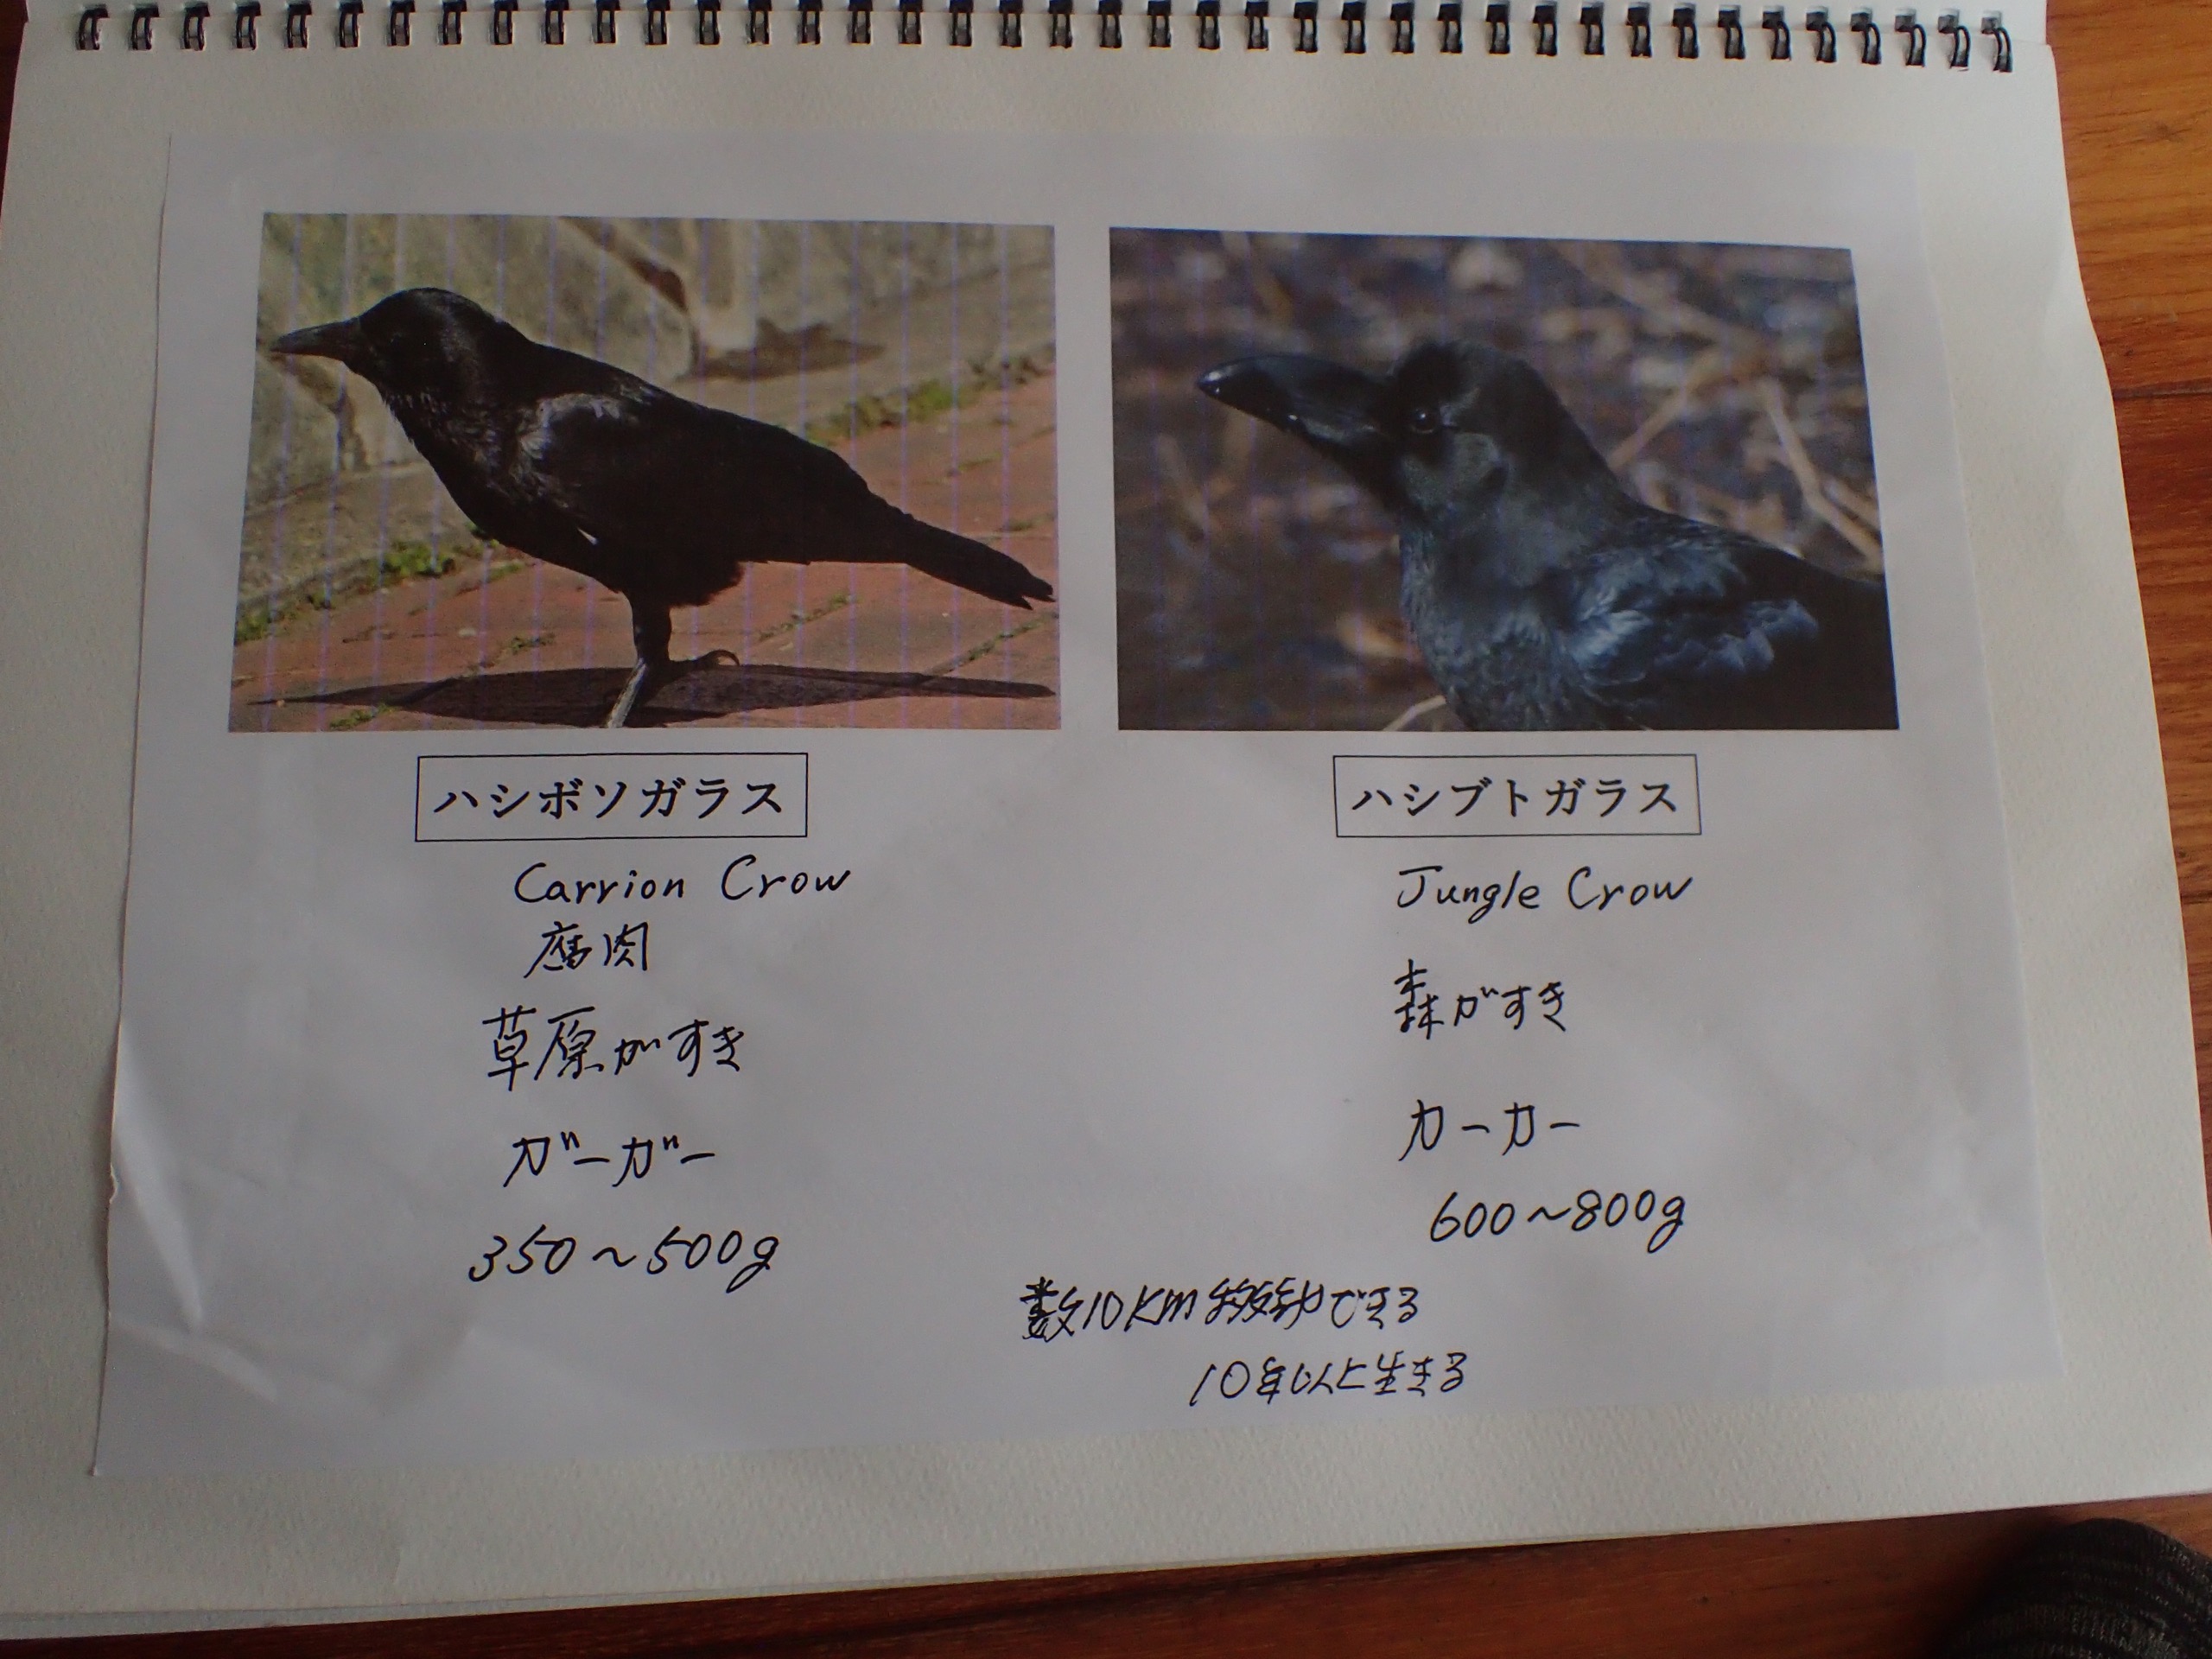 ハシボソガラス
Carrion Crow
腐肉
草原がすき
ガーガー
350~500g
ハシブトガラス
Jungle Crow
森がすき
カーカー
600~800g
数10Km移動できる
10年以上生きる